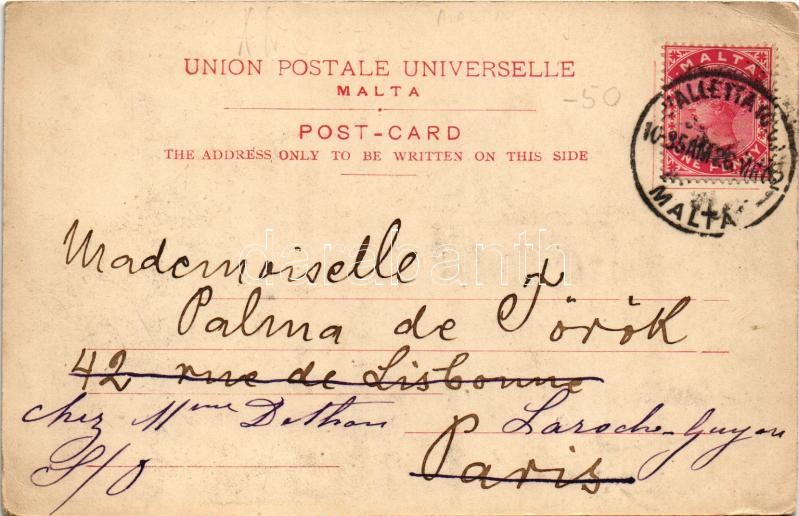 UNION POSTALE UNIVERSELLE
MALTA
POST-CARD
THE ADDRESS ONLY TO BE WRITTEN ON THIS SIDE
-50
MALTA
ONE PENNY
VALLETTA
10.35AM 26
MALTA
darabanth
Mademoiselle
Palma de Török
42 rue de Lisbonne
chez Mme Dethan Laroche-Guyon
S/O
Paris